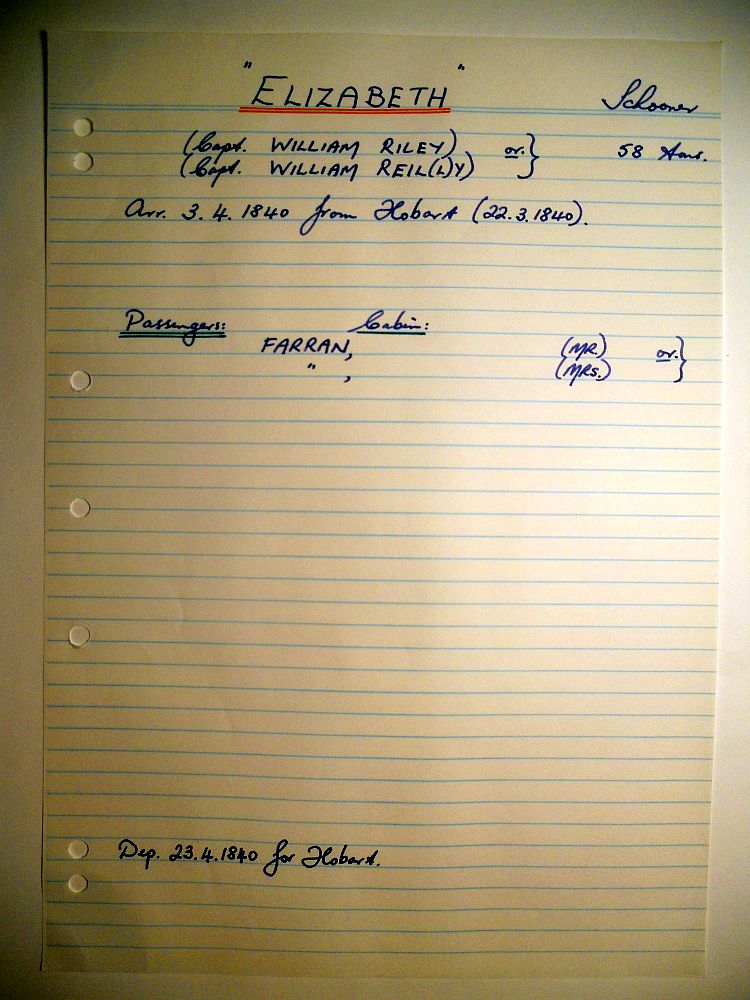 "ELIZABETH" Schooner
(Capt. WILLIAM RILEY) or.} 58 tons.
(Capt. WILLIAM REIL(L)Y)
Arr. 3.4.1840 from Hobart (22.3.1840).
Passengers: Cabin:
FARRAN, (MR.) or.}
" , (MRS.)
Dep. 23.4.1840 for Hobart.